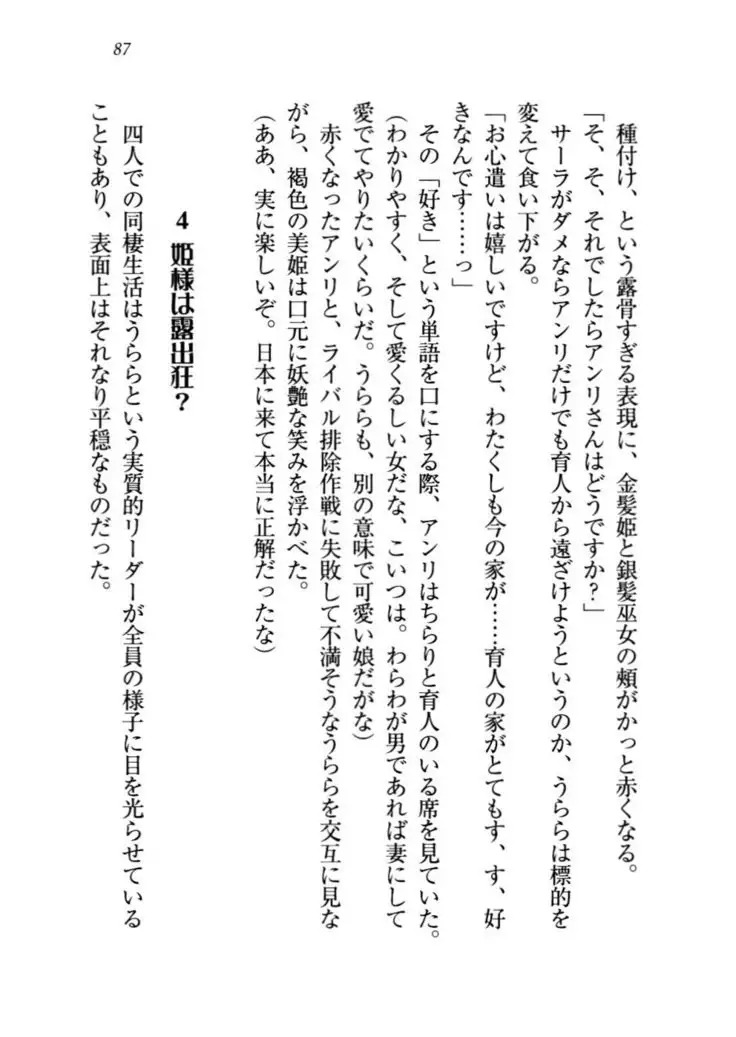 87
種付け、という露骨すぎる表現に、金髪姫と銀髪巫女の頬がかっと赤くなる。
「そ、そ、それでしたらアンリさんはどうですか?」
サーラがダメならアンリだけでも育人から遠ざけようというのか、うららは標的を
変えて食い下がる。
「お心遣いは嬉しいですけど、わたくしも今の家が……育人の家がとてもす、す、好
きなんです……っ」
その「好き」という単語を口にする際、アンリはちらりと育人のいる席を見ていた。
(わかりやすく、そして愛くるしい女だな、こいつは。わらわが男であれば妻にして
愛でてやりたいくらいだ。うららも、別の意味で可愛い娘だがな)
赤くなったアンリと、ライバル排除作戦に失敗して不満そうなうららを交互に見な
がら、褐色の美姫は口元に妖艶な笑みを浮かべた。
(ああ、実に楽しいぞ。日本に来て本当に正解だったな)
4 姫様は露出狂?
四人での同棲生活はうららという実質的リーダーが全員の様子に目を光らせている
こともあり、表面上はそれなり平穏なものだった。